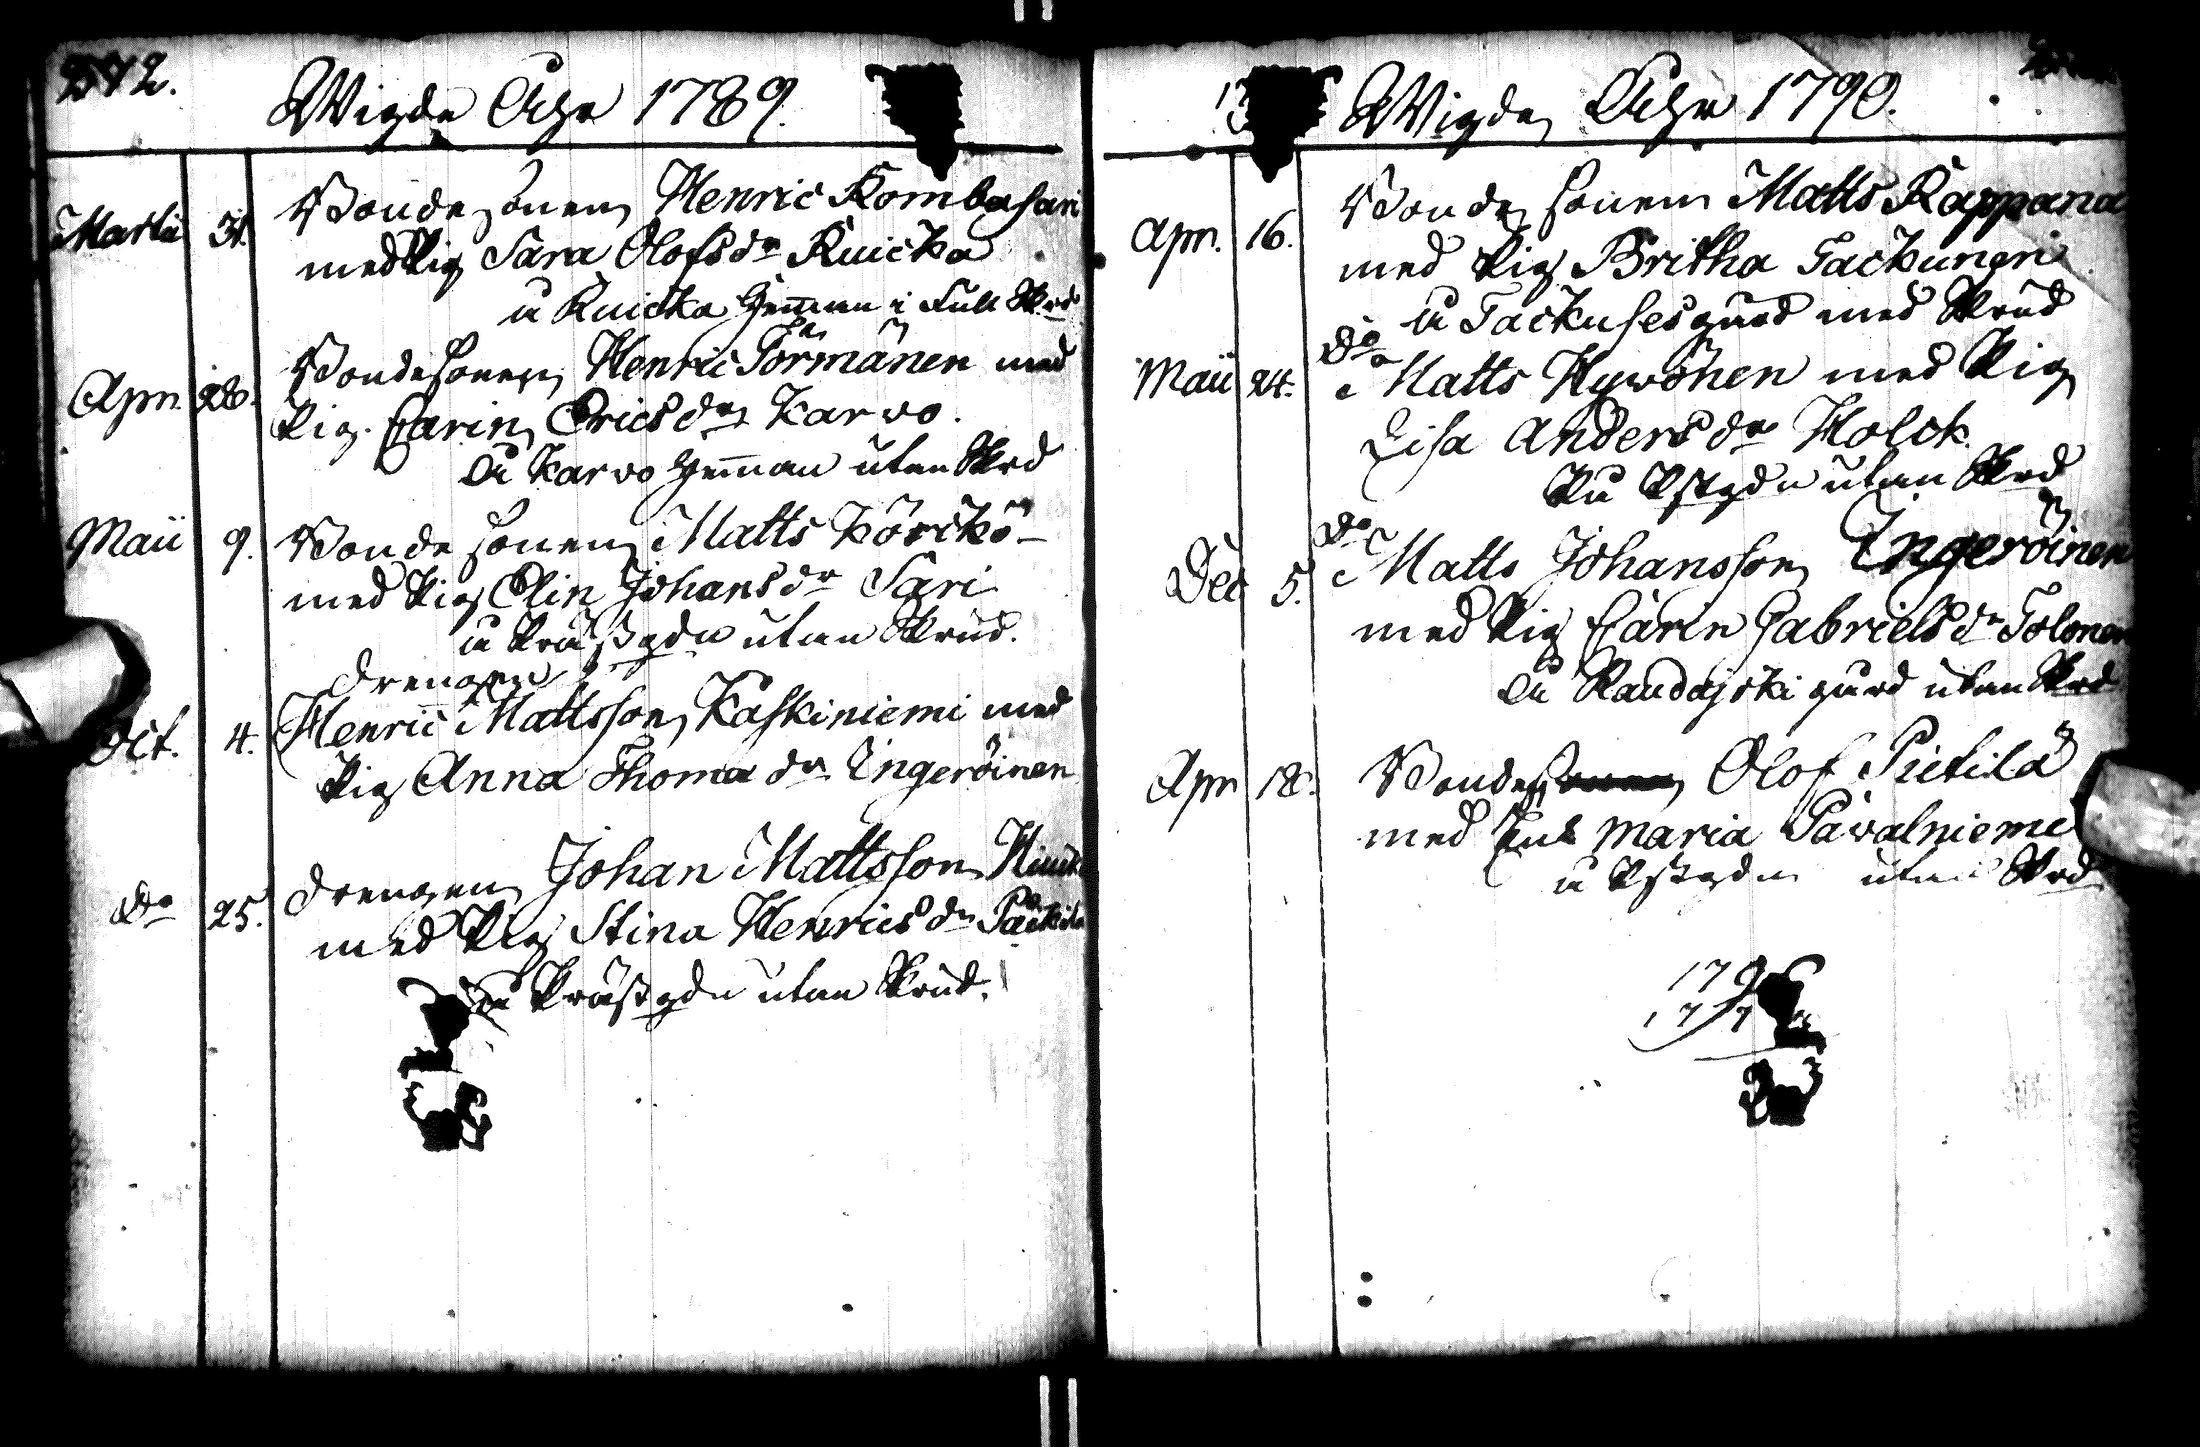 Wigde Åhr 1789.
Martii 31. Bondesonen Henric Kombasari
med Pig Sara Olofsdr Kuicka
å Kuicka Hemman i Full Skrud
Apr. 28. Bondesonen Henric Törmänen med
Pig. Carin Ericsdr Karvo.
å Karvo Hemman utan Skrd
Maii 9. Bondesonen Matts Körckö
med Pig Elin Johansdr Sari
å Prästgdn utan Skrud.
Drengen
Oct. 4. Henric Mattsson Kaskiniemi med
Pig Anna Thomadr Ingeröinen
Do 25. Drengen Johan Mattsson
med Pig Stina Henricsdr
å Prästgdn utan Skrud.
Wigde Åhr 1790.
Apr. 16. Bondesonen Matts Kappana
med Pig Britha Tackungri
å Tackuses gård med Skrud
Do
Maii 24. Matts Hywönen med Pig
Lisa Andersdr Holck.
På Pstgdn utan Skrd
Do
Dec 5. Matts Johansson Ingeröinen
med Pig Carin Gabrielsdr Tolonen
å Raudajoki gård utan Skrd
Apr 18. Bonden Olof Pietilä
med Enk Maria Pawalniemi
å Pstgdn utan Skrd